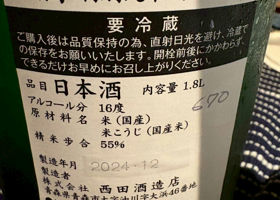 要冷蔵
ご購入後は品質保持の為、直射日光を避け、冷蔵で
の保存をお願いいたします。開栓前後にかかわらず、
できるだけお早めにお召し上がりください。
品目 日本酒 内容量 1.8L
アルコール分 16度
原材料名 米(国産)
米こうじ(国産米)
精米歩合 55%
670
製造年月 2024.12
製造者
株式会社 西田酒造店
青森県青森市大字油川字大浜46番地